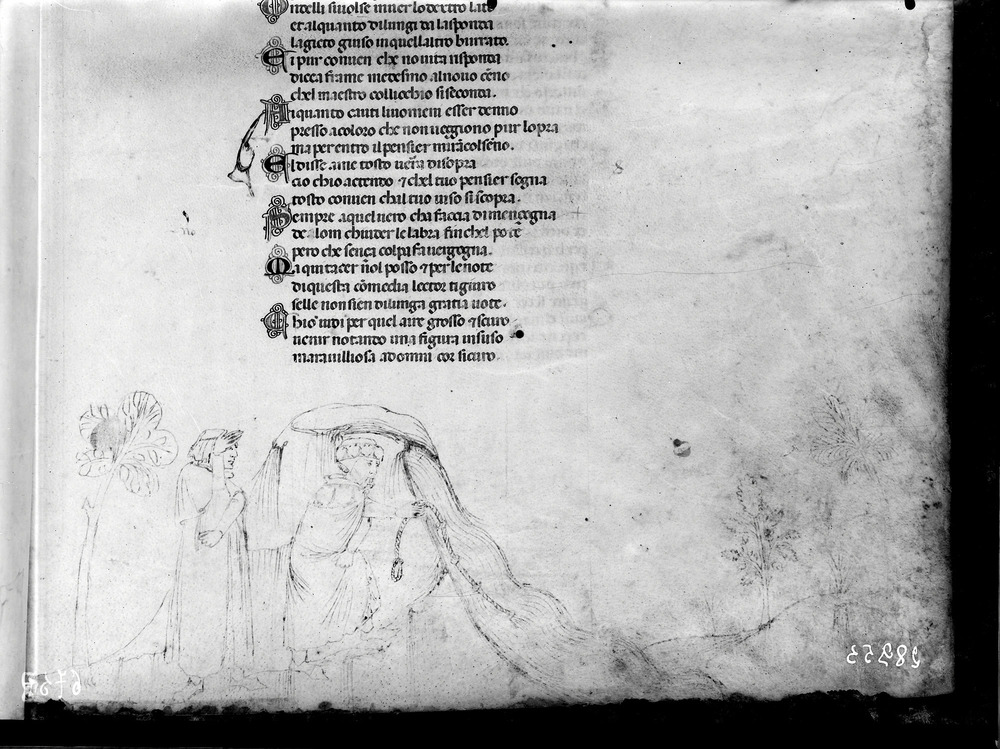 Ondelli si uolse inuer lo dextro lato
et alquanto dilungi da la sponda
la gicto giuso in quell altro burrato.
E i pur conuen che nouita risponda
dicea fra me medesimo al nouo cēno
chel maestro coll ucchio si seconda.
Ai quanto cauti li uomeni esser denno
presso a coloro che non ueggiono pur lopra
ma per entro il pensier mirā col senō.
El disse a me tosto uerra di sopra
cio chio actendo ⁊ chel tuo pensier sogna
tosto conuen chal tuo uiso si scopra.
Sempre a quel uero cha faccia di mençogna
de lom chiuder le labra fin chel pote
pero che sença colpa fa uergogna.
Ma qui tacer nol posso ⁊ per le note
di questa cōmedia lector ti giuro
selle non sien di lunga gratia uote.
Chio uidi per quel aire grosso ⁊ scuro
uenir notando una figura insuso
marauilliosa ad omni cor sicuro.
28253